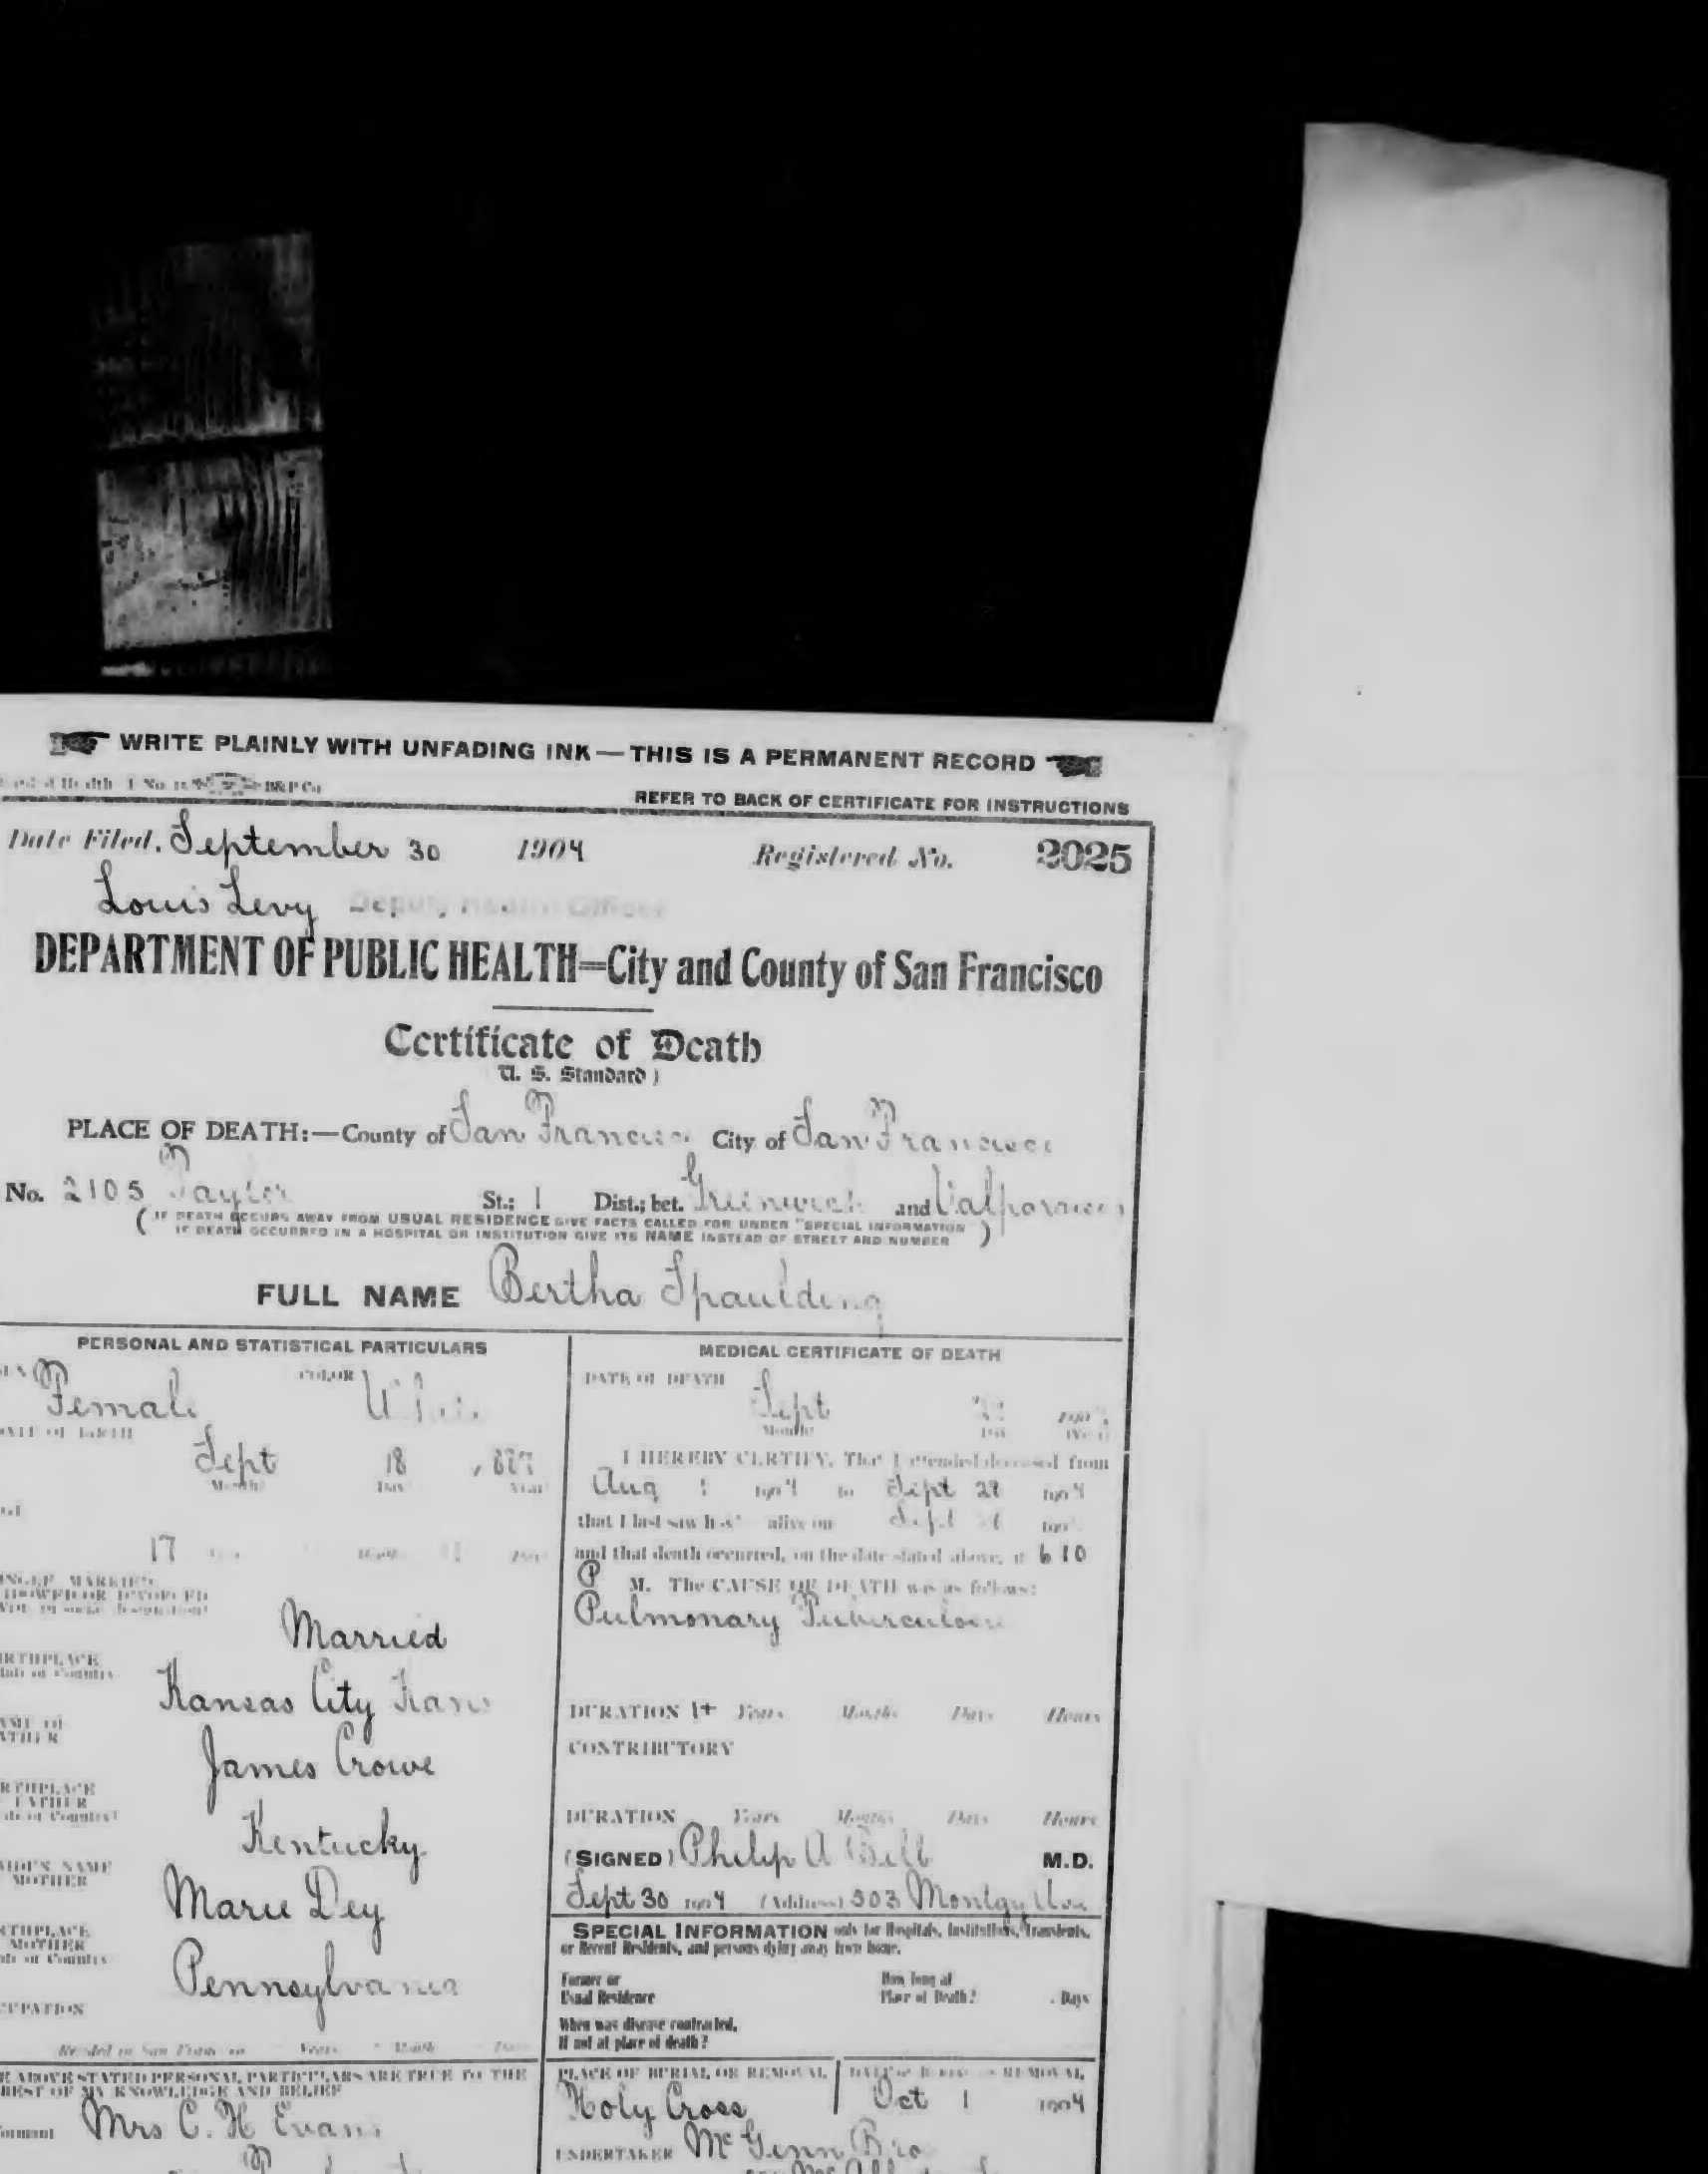 WRITE PLAINLY WITH UNFADING INK—THIS IS A PERMANENT RECORD
REFER TO BACK OF CERTIFICATE FOR INSTRUCTIONS
Date Filed, September 30 1904 Registered No. 2025
Louis Levy Deputy Health Officer
DEPARTMENT OF PUBLIC HEALTH=City and County of San Francisco
Certificate of Death
U. S. Standard)
PLACE OF DEATH:—County of San Francisco City of San Francisco
No. 2105 Taylor St.; 1 Dist.; bet. Greenwich and Valparaiso
(IF DEATH OCCURS AWAY FROM USUAL RESIDENCE GIVE FACTS CALLED FOR UNDER "SPECIAL INFORMATION
IF DEATH OCCURRED IN A HOSPITAL OR INSTITUTION GIVE ITS NAME INSTEAD OF STREET AND NUMBER)
FULL NAME Bertha Spaulding
PERSONAL AND STATISTICAL PARTICULARS
COLOR
Female
DATE OF BIRTH
Sept 18
Month Day Year
17
Married
Kansas City Kans
James Crowe
FATHER
Kentucky
MOTHER
Marie Dey
MOTHER
Pennsylvania
Resided in San Francisco Years Months Days
ABOVE STATED PERSONAL PARTICULARS ARE TRUE TO THE
BEST OF MY KNOWLEDGE AND BELIEF
Mrs C. H Evans
MEDICAL CERTIFICATE OF DEATH
DATE OF DEATH Sept
Month Day
I HEREBY CERTIFY, That I attended deceased from
Aug 1 1904 to Sept 29 1904
that I last saw h alive on Sept
and that death occurred, on the date stated above, at 6 10
P M. The CAUSE OF DEATH was as follows:
Pulmonary Tuberculosis
DURATION 1+ Years Months Days Hours
CONTRIBUTORY
DURATION Years Months Days Hours
(SIGNED) Philip A Bill M.D.
Sept 30 1904 (Address) 503 Montgy
SPECIAL INFORMATION only for Hospitals, Institutions, Transients,
or Recent Residents, and persons dying away from home.
Former or
Usual Residence
How long at
Place of Death? Days
When was disease contracted,
If not at place of death?
PLACE OF BURIAL OR REMOVAL
Holy Cross
DATE of BURIAL or REMOVAL
Oct 1 1904
UNDERTAKER McGinn Bro